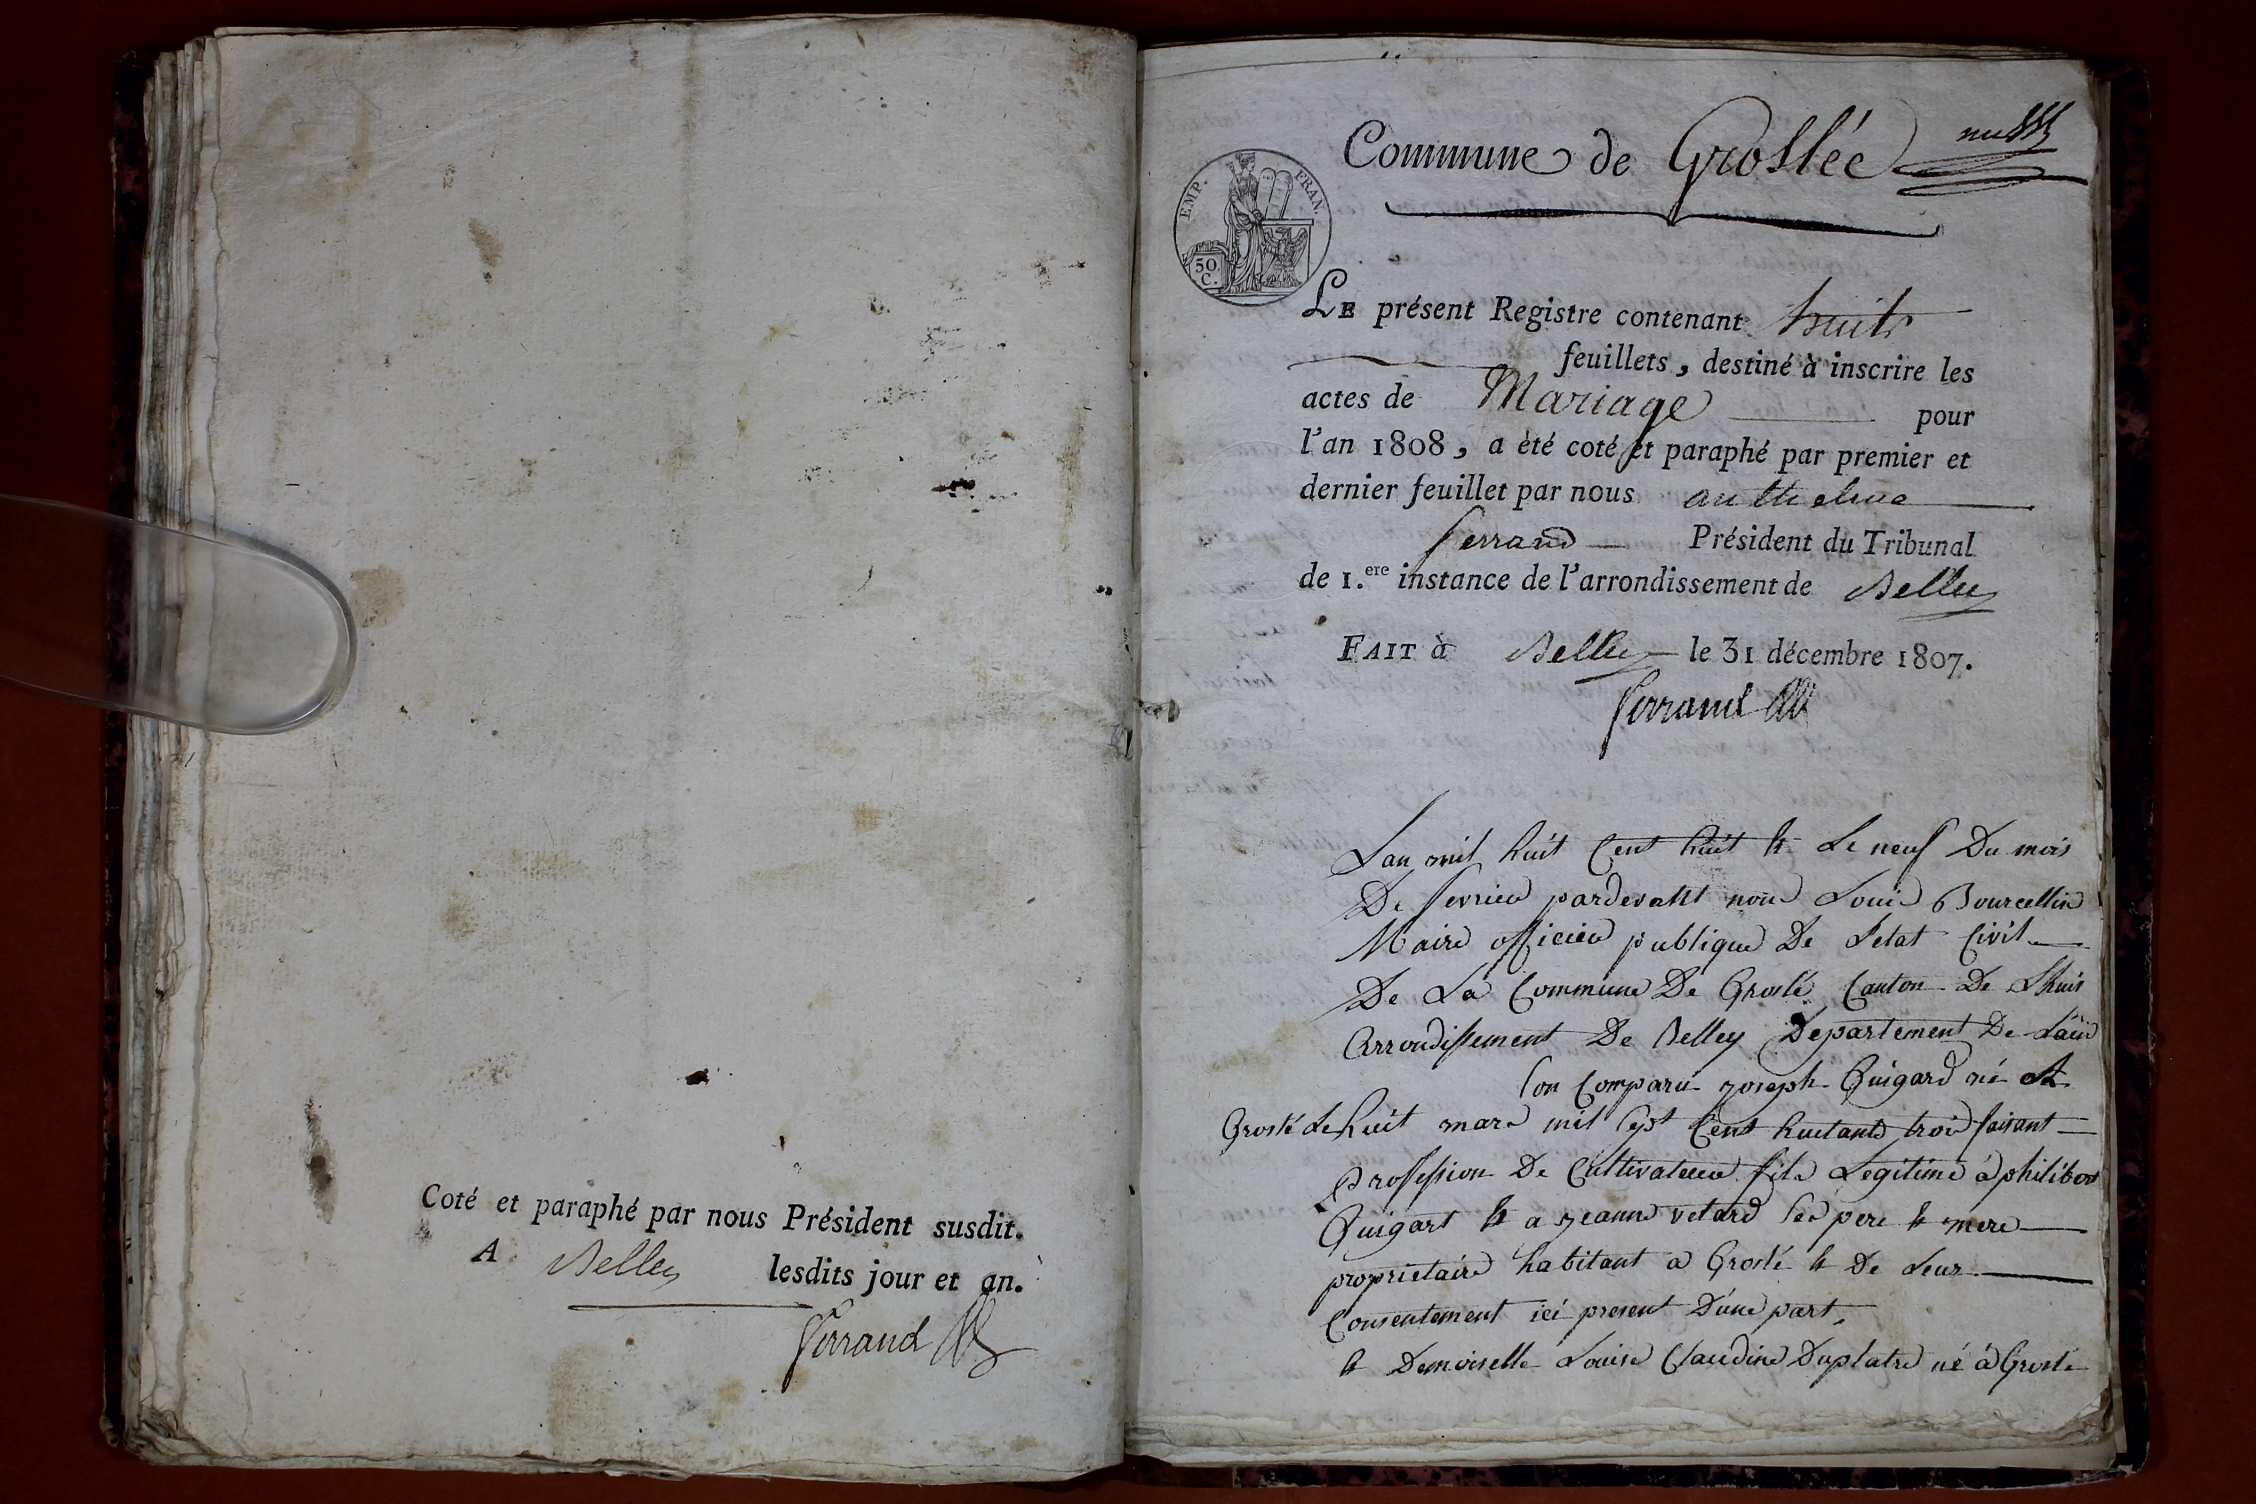 Coté et paraphé par nous Président susdit.
A Belley lesdits jour et an.
Ferrand
Commune de Groslée
EMP. FRAN.
50 C.
LE présent Registre contenant huit
feuillets, destiné à inscrire les
actes de Mariage pour
l'an 1808, a été coté et paraphé par premier et
dernier feuillet par nous anthelme
ferrand Président du Tribunal
de 1.ere instance de l'arrondissement de Belley
FAIT à Belley le 31 décembre 1807.
Ferrand
Lan mil huit Cent huit & Le neuf Du mois
De fevrier pardevant nous Louis Bourcellin
Maire officier publique De Letat Civil
De La Commune De Groslé Canton De Lhuis
Arrondissement De Belley Departement De Lain
son Comparu joseph Quigard né A
Groslé Le huit mars mil sept Cent huitante trois faisant
Profession De Cultivateur fils Legitime à philibert
Quigart & a jeanne vetard ses pere & mere
proprietaire habitant a Groslé & De Leur
Consentement ici present D'une part,
& Demoiselle Louise Claudine Duplatre né à Groslé